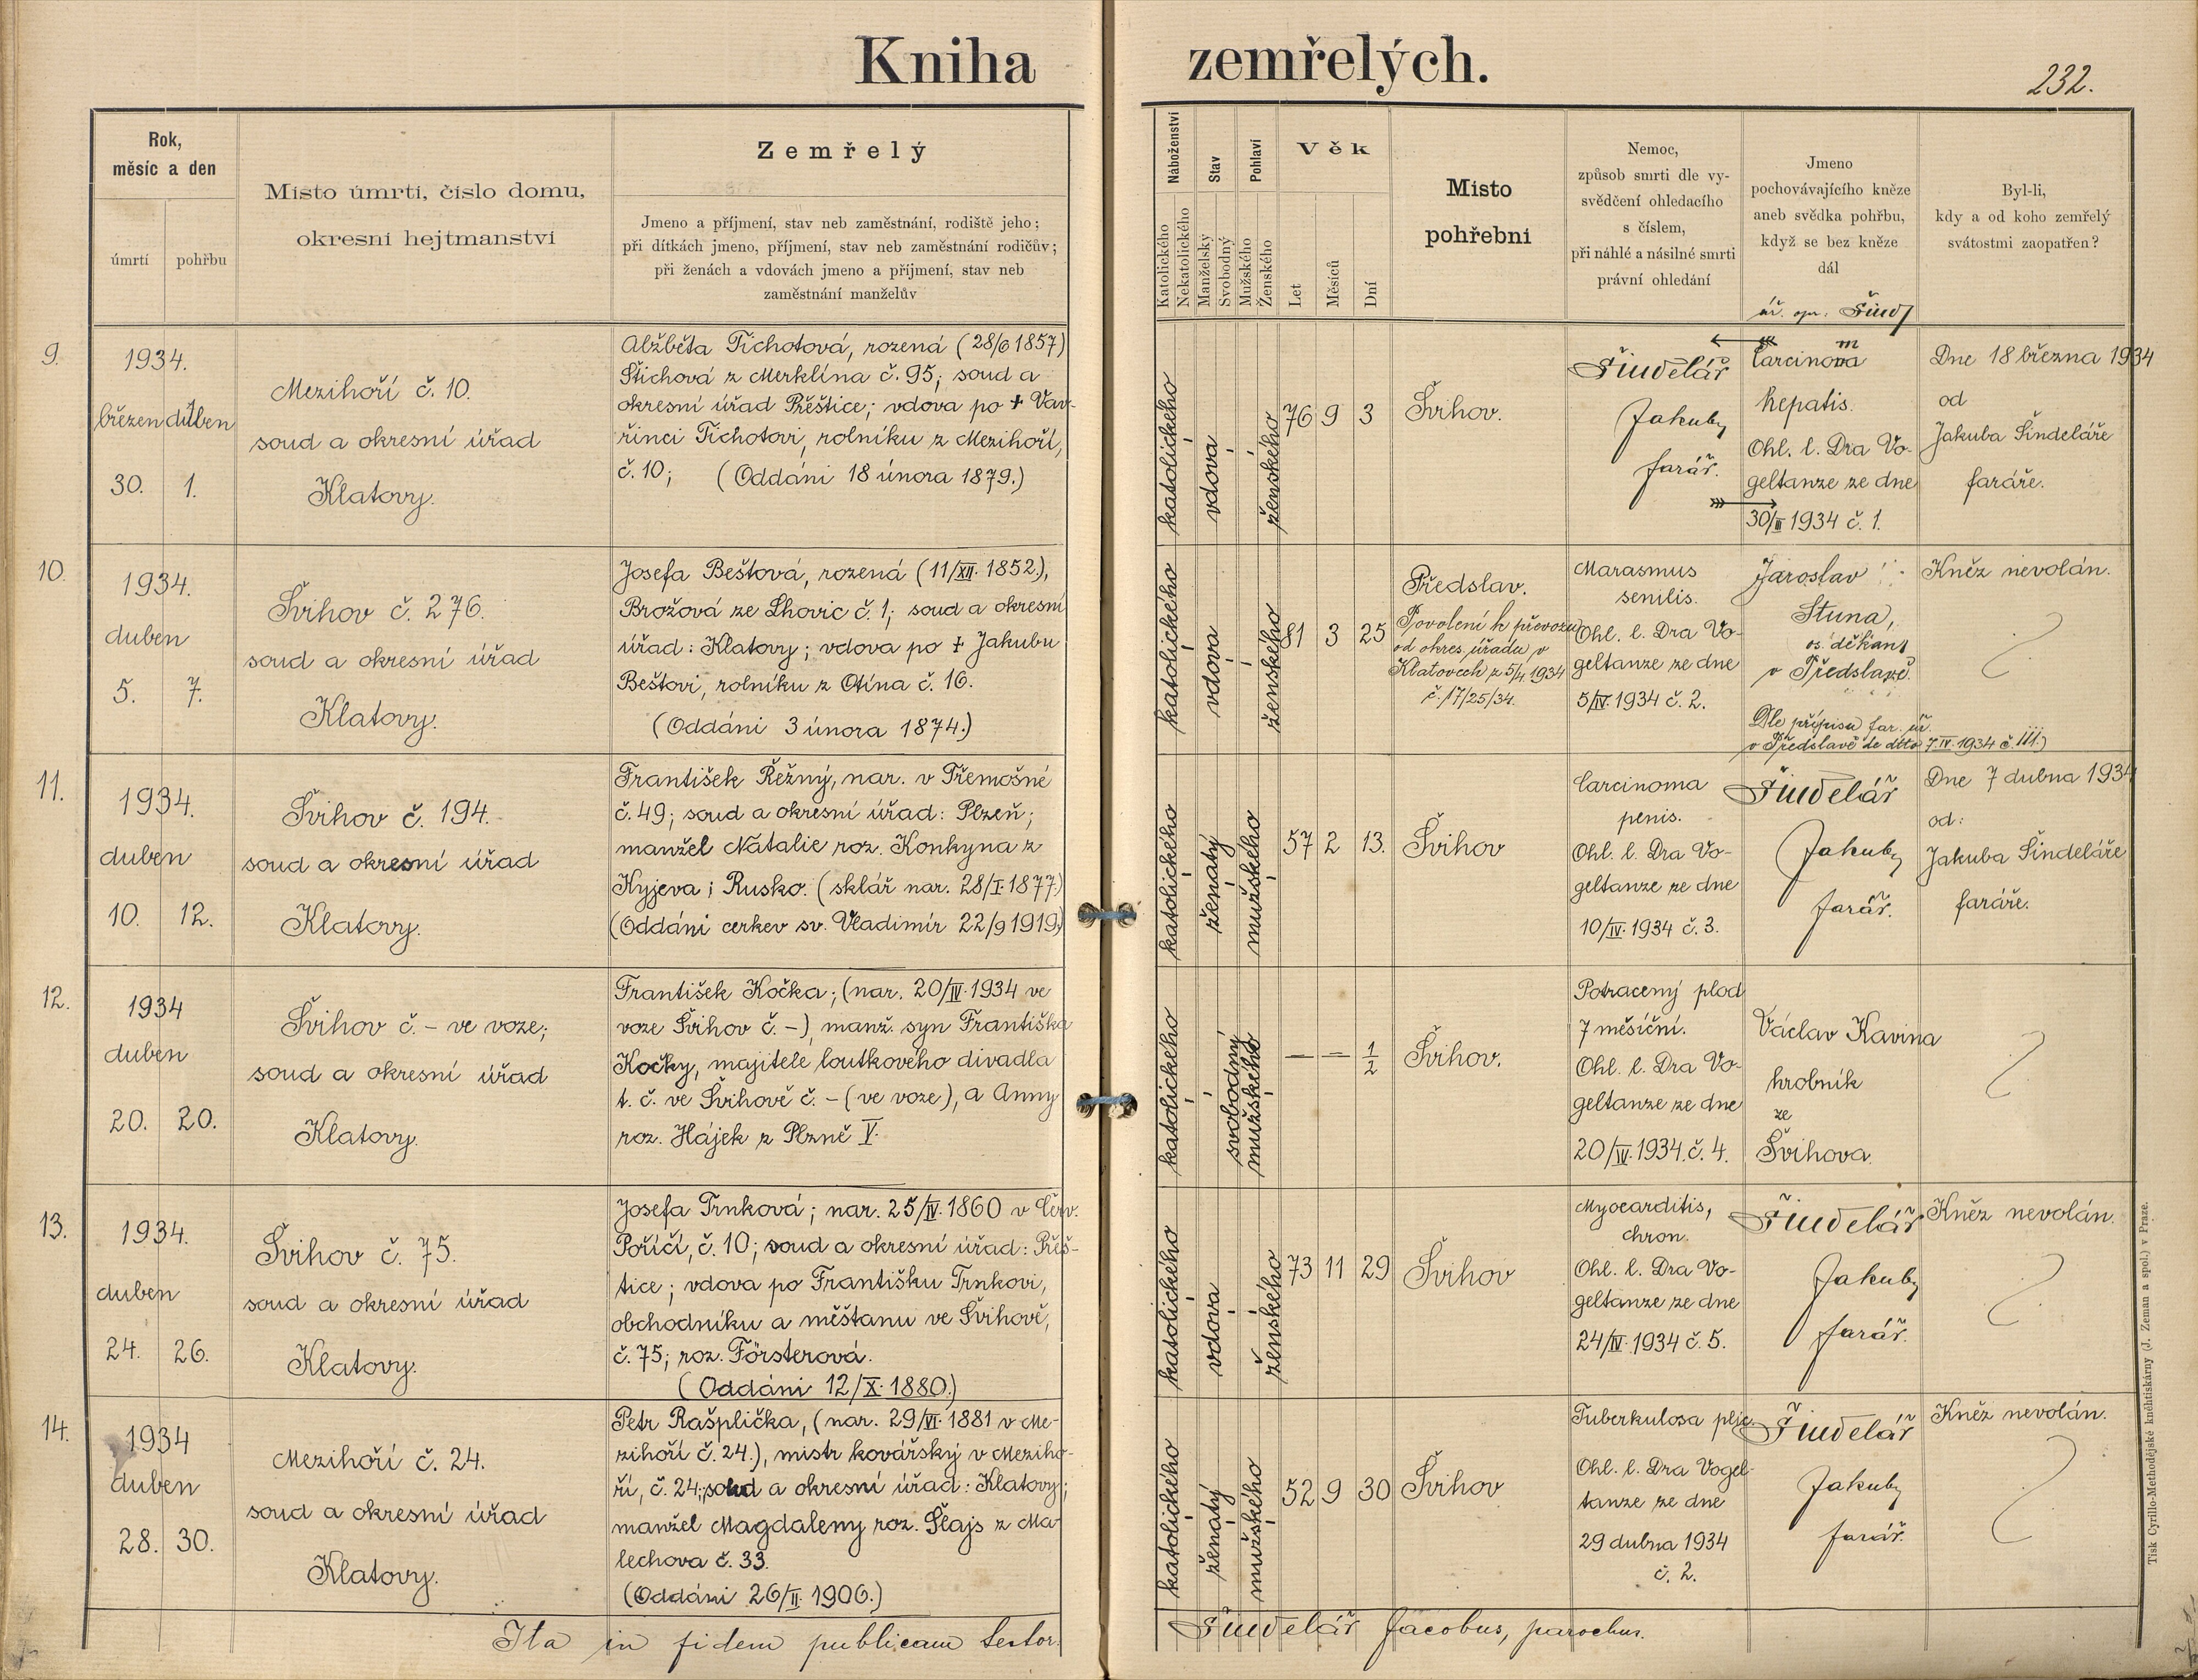 Kniha zemřelých.
232.
Rok,
měsíc a den
úmrtí
pohřbu
Místo úmrtí, číslo domu,
okresní hejtmanství
Zemřelý
Jmeno a příjmení, stav neb zaměstnání, rodiště jeho;
při dítkách jmeno, příjmení, stav neb zaměstnání rodičův;
při ženách a vdovách jmeno a příjmení, stav neb
zaměstnání manželův
Náboženství
Katolického
Nekatolického
Stav
Manželský
Svobodný
Pohlaví
Mužského
Ženského
Věk
Let
Měsíců
Dní
Místo
pohřební
Nemoc,
způsob smrti dle vy-
svědčení ohledacího
s číslem,
při náhlé a násilné smrti
právní ohledání
Jmeno
pochovávajícího kněze
aneb svědka pohřbu,
když se bez kněze
dál
Byl-li,
kdy a od koho zemřelý
svátostmi zaopatřen?
9.
1934.
březen duben
30. 1.
Mezihoří č. 10.
soud a okresní úřad
Klatovy.
Alžběta Tichotová, rozená (28/6 1857)
Štichová z Merklína č. 95; soud a
okresní úřad Přeštice; vdova po + Vav-
řinci Tichotovi, rolníku z Mezihoří,
č. 10; (Oddáni 18 února 1879.)
katolického
vdova
ženského
76 9 3
Švihov.
Šindelář
Jakub,
farář.
Carcinoma
hepatis.
Ohl. l. Dra Vo-
geltanze ze dne
30/III 1934 č. 1.
Dne 18 března 1934
od
Jakuba Šindeláře
faráře.
10.
1934.
duben
5. 7.
Švihov č. 276.
soud a okresní úřad
Klatovy.
Josefa Beštová, rozená (11/XII. 1852.),
Brožová ze Lhovic č. 1; soud a okresní
úřad: Klatovy; vdova po + Jakubu
Beštovi, rolníku z Otína č. 16.
(Oddáni 3 února 1874.)
katolického
vdova
ženského
81 3 25
Předslav.
Povolení k převozu
od okres. úřadu v
Klatovech z 5/4. 1934
č. 17/25/34.
Marasmus
senilis.
Ohl. l. Dra Vo-
geltanze ze dne
5/IV. 1934 č. 2.
Jaroslav
Stuna,
os. děkan
v Předslavě.
Dle přípisu far. úř.
v Předslavě de dato 7.IV. 1934 č. 111.)
Kněz nevolán.
11.
1934.
duben
10. 12.
Švihov č. 194.
soud a okresní úřad
Klatovy.
František Řežný, nar. v Třemošné
č. 49; soud a okresní úřad: Plzeň;
manžel Natalie roz. Konkyna z
Kyjeva; Rusko. (sklář nar. 28/I. 1877.)
(Oddáni cerkev sv. Vladimír 22/9 1919)
katolického
ženatý
mužského
57 2 13.
Švihov
Carcinoma
penis.
Ohl. l. Dra Vo-
geltanze ze dne
10/IV. 1934 č. 3.
Šindelář
Jakub,
farář.
Dne 7 dubna 1934
od:
Jakuba Šindeláře
faráře.
12.
1934
duben
20. 20.
Švihov č. – ve voze;
soud a okresní úřad
Klatovy.
František Kočka; (nar. 20/IV. 1934 ve
voze Švihov č. –), manž. syn Františka
Kočky, majitele loutkového divadla
t. č. ve Švihově č. – (ve voze), a Anny
roz. Hájek z Plzně V.
katolického
svobodný
mužského
— — 1/2
Švihov.
Potracený plod
7 měsíční.
Ohl. l. Dra Vo-
geltanze ze dne
20/IV. 1934. č. 4.
Václav Kavina
hrobník
ze
Švihova.
13.
1934.
duben
24. 26.
Švihov č. 75.
soud a okresní úřad
Klatovy.
Josefa Trnková; nar. 25/IV. 1860 v Červ.
Poříčí, č. 10; soud a okresní úřad: Přeš-
tice; vdova po Františku Trnkovi,
obchodníku a měšťanu ve Švihově,
č. 75; roz. Försterová.
(Oddáni 12/X. 1880.)
katolického
vdova
ženského
73 11 29
Švihov
Myocarditis,
chron.
Ohl. l. Dra Vo-
geltanze ze dne
24/IV. 1934 č. 5.
Šindelář
Jakub,
farář.
Kněz nevolán.
14.
1934
duben
28. 30.
Mezihoří č. 24.
soud a okresní úřad
Klatovy.
Petr Rašplička, (nar. 29/VI. 1881 v Me-
zihoří č. 24.), mistr kovářský v Meziho-
ří, č. 24; soud a okresní úřad: Klatovy;
manžel Magdaleny roz. Šlajs z Ma-
lechova č. 33.
(Oddáni 26/II. 1906.)
katolického
ženatý
mužského
52 9 30
Švihov
Tuberkulosa plic.
Ohl. l. Dra Vogel-
tanze ze dne
29 dubna 1934
č. 2.
Šindelář
Jakub,
farář.
Kněz nevolán.
Ita in fidem publicam testor.
Šindelář Jacobus, parochus.
Tisk Cyrillo-Methodějské knihtiskárny (J. Zeman a spol.) v Praze.